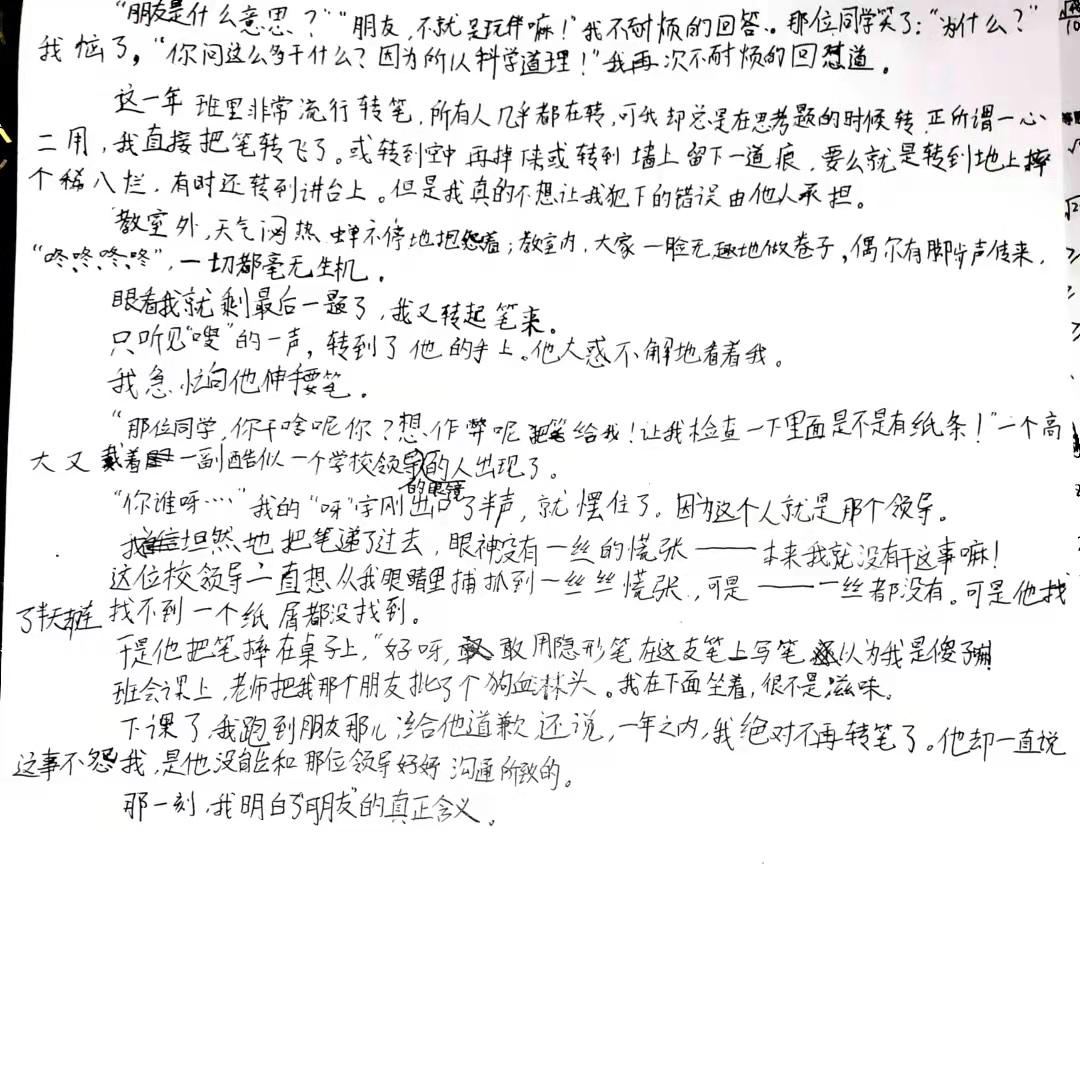 “朋友是什么意思？”“朋友，不就是玩伴嘛！”我不耐烦的回答。那位同学笑了：“为什么？”
我恼了，“你问这么多干什么？因为所以科学道理！”我再次不耐烦的回想道。
这一年班里非常流行转笔，所有人几乎都在转，可我却总是在思考题的时候转，正所谓一心
二用，我直接把笔转飞了。或转到空中再掉下来或转到墙上留下一道痕，要么就是转到地上摔
个稀八烂，有时还转到讲台上。但是我真的不想让我犯下的错误由他人承担。
教室外，天气闷热，蝉不停地抱怨着；教室内，大家一脸无趣地做卷子，偶尔有脚步声传来，
“咚咚咚咚”，一切都毫无生机。
眼看我就剩最后一题了，我又转起笔来。
只听见“嗖”的一声，转到了他的手上。他大惑不解地看着我。
我急忙向他伸手要笔。
“那位同学，你干啥呢你？想作弊呢把笔给我！让我检查一下里面是不是有纸条！”一个高
大又戴着一副酷似一个学校领导的眼镜的人出现了。
“你谁呀……”我的“呀”字刚出口了半声，就摆住了。因为这个人就是那个领导。
我坦然地把笔递了过去，眼神没有一丝的慌张——本来我就没有干这事嘛！
这位校领导一直想从我眼睛里捕抓到一丝丝慌张，可是——一丝都没有。可是他找
了半天连找不到一个纸屑都没找到。
于是他把笔摔在桌子上，“好呀，敢用隐形笔在这支笔上写笔还以为我是傻子嘛！
班会课上，老师把我那个朋友批了个狗血淋头。我在下面坐着，很不是滋味。
下课了，我跑到朋友那儿给他道歉，还说，一年之内，我绝对不再转笔了。他却一直说
这事不怨我，是他没能和那位领导好好沟通所致的。
那一刻，我明白了“朋友”的真正含义。